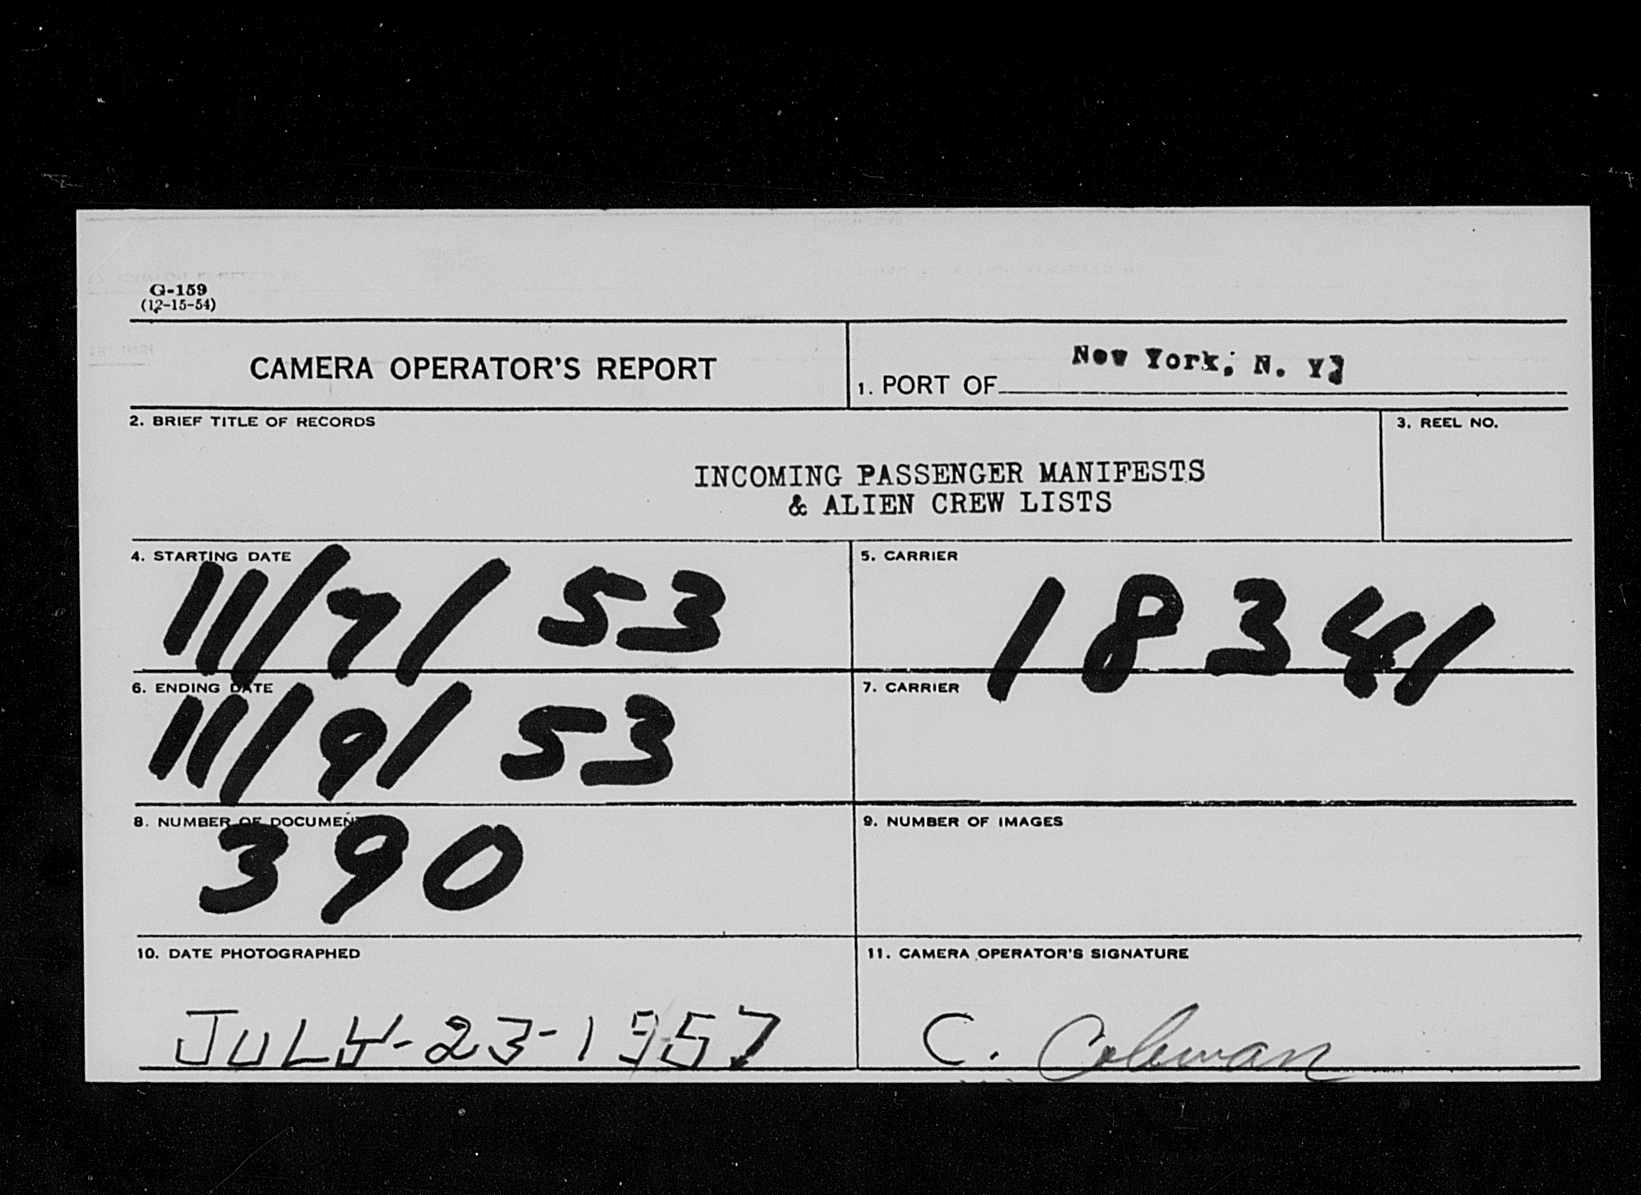 G-159
(12-15-54)
CAMERA OPERATOR'S REPORT
1. PORT OF New York, N. Y.
2. BRIEF TITLE OF RECORDS
3. REEL NO.
INCOMING PASSENGER MANIFESTS
& ALIEN CREW LISTS
4. STARTING DATE
11/7/53
5. CARRIER
18341
6. ENDING DATE
11/9/53
7. CARRIER
8. NUMBER OF DOCUMENT
390
9. NUMBER OF IMAGES
10. DATE PHOTOGRAPHED
JULY-23-1957
11. CAMERA OPERATOR'S SIGNATURE
C. Coleman